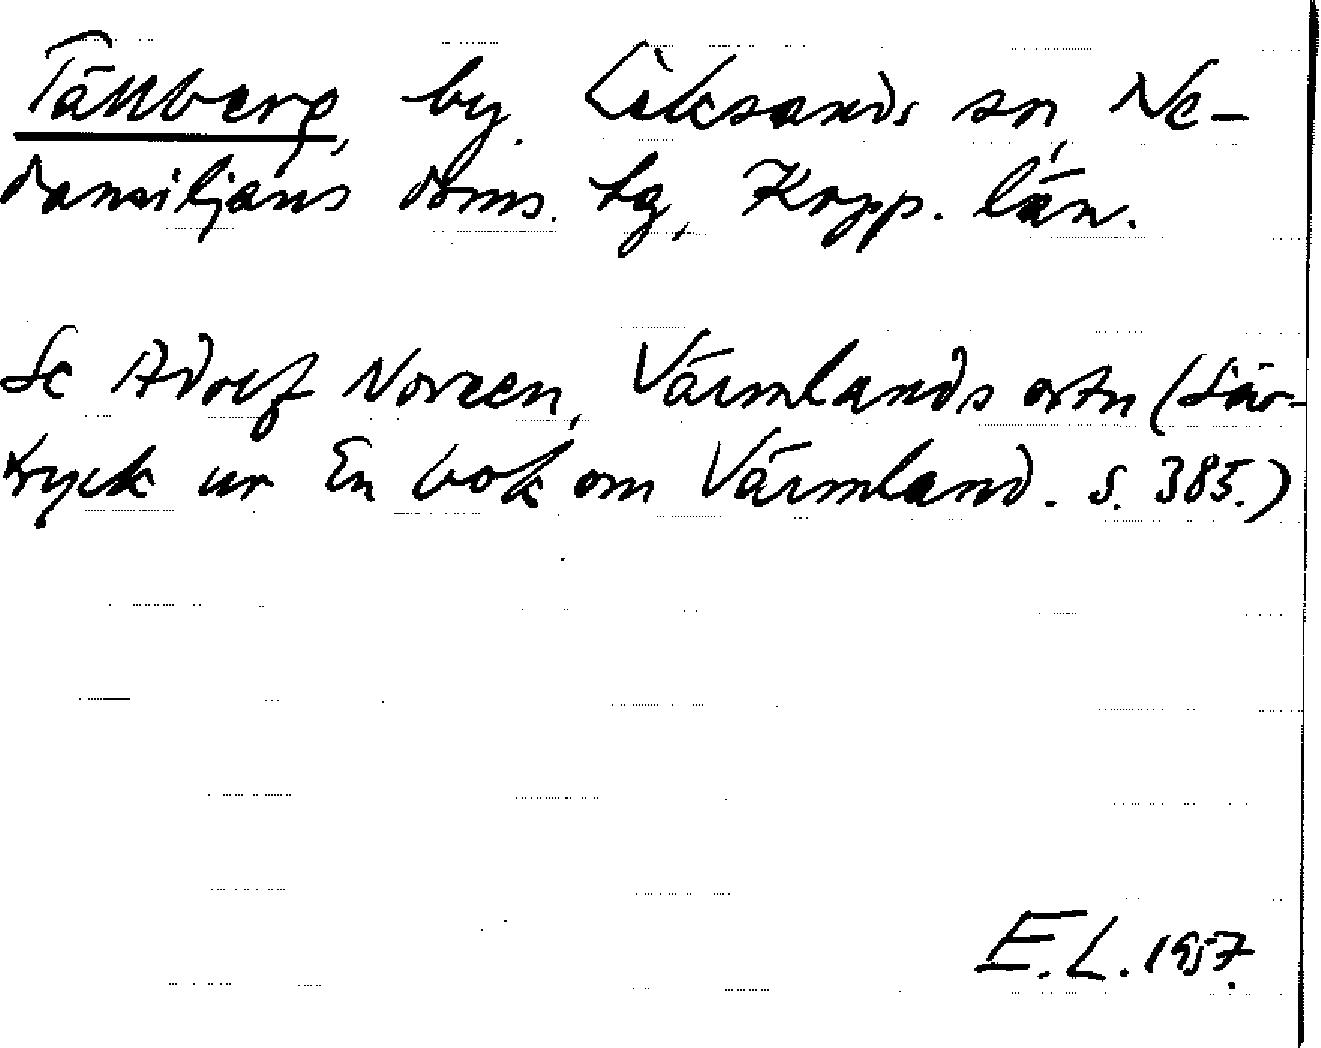 Tällberg, by. Leksands sn, Ne-
dansiljans doms. tg, Kopp. län.
Se Adolf Noreen, Värmlands ortn (Sär-
tryck ur En bok om Värmland. S. 385.)
E.L. 1957.